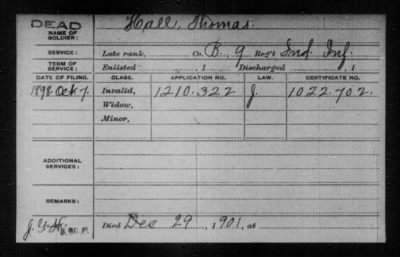 DEAD
NAME OF SOLDIER: Hall, Thomas.
SERVICE: Late rank, Co. B, 9 Reg't Ind. Inf.
TERM OF SERVICE: Enlisted , 1 Discharged , 1
DATE OF FILING. CLASS. APPLICATION NO. LAW. CERTIFICATE NO.
1898 Oct 7. Invalid, 1210.322 J. 1022.702.
Widow,
Minor,
ADDITIONAL SERVICES:
REMARKS:
Died Dec 29, 1901, at